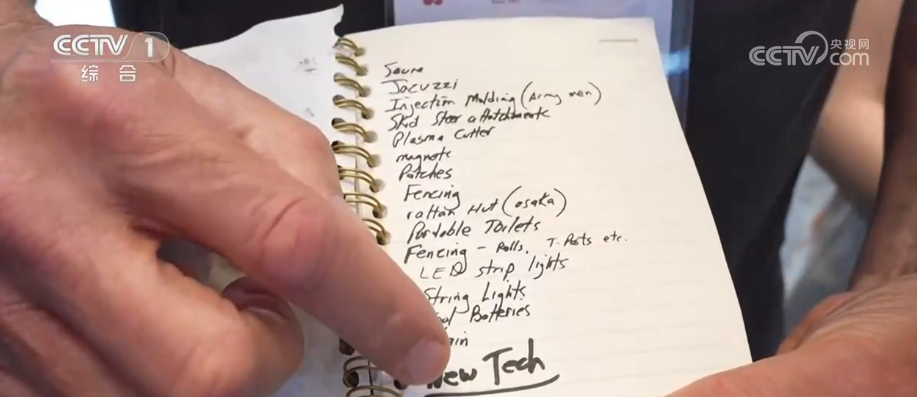 CCTV 1
综合
央视网
CCTV.com
Sauna
Jacuzzi
Injection Molding (Army men)
Skid Steer attatchments
Plasma Cutter
magnets
Patches
Fencing
rattan Hut (osaka)
Portable Toilets
Fencing - Rolls, T-Posts etc.
LED strip lights
String Lights
Batteries
New Tech